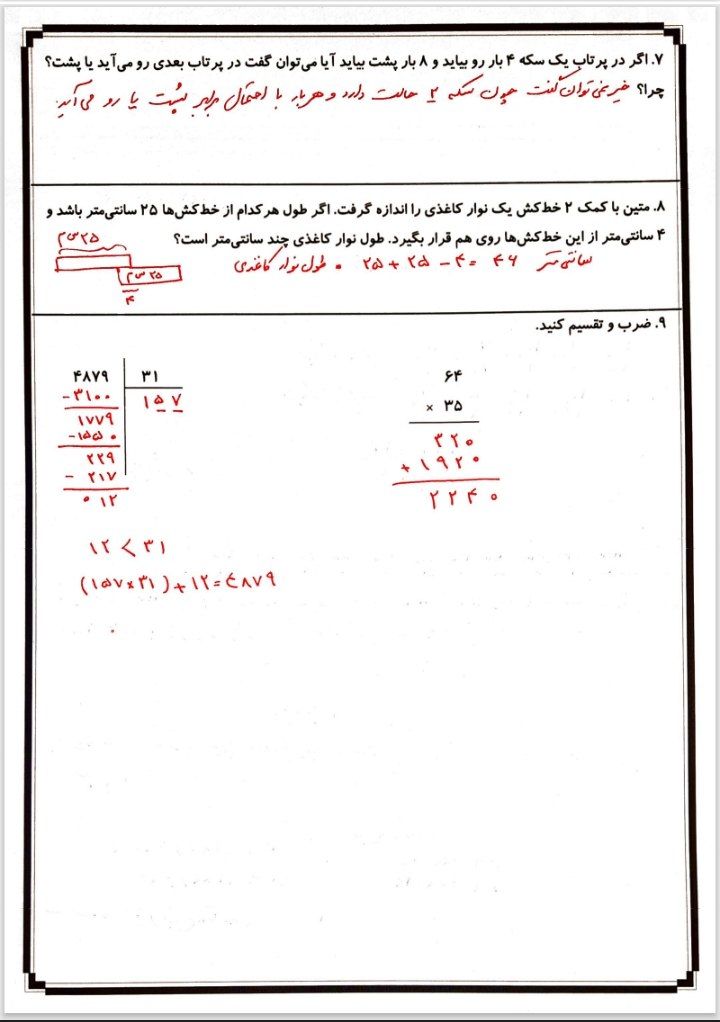 ۷. اگر در پرتاب یک سکه ۴ بار رو بیاید و ۸ بار پشت بیاید آیا می‌توان گفت در پرتاب بعدی رو می‌آید یا پشت؟
چرا؟ خیر نمی‌توان گفت چون سکه ۲ حالت دارد و هر بار با احتمال برابر پشت یا رو می‌آید.
۸. متین با کمک ۲ خط‌کش یک نوار کاغذی را اندازه گرفت. اگر طول هرکدام از خط‌کش‌ها ۲۵ سانتی‌متر باشد و
۴ سانتی‌متر از این خط‌کش‌ها روی هم قرار بگیرد. طول نوار کاغذی چند سانتی‌متر است؟
۲۵ س م
۲۵ س م
۴
طول نوار کاغذی ۲۵ + ۲۵ - ۴ = ۴۶ سانتی متر
۹. ضرب و تقسیم کنید.
۶۴
× ۳۵
۳۲۰
+ ۱۹۲۰
۲۲۴۰
۴۸۷۹ ۳۱
- ۳۱۰۰ ۱۵۷
۱۷۷۹
- ۱۵۵۰
۲۲۹
- ۲۱۷
۰۱۲
۱۲ < ۳۱
(۱۵۷ × ۳۱) + ۱۲ = ۴۸۷۹